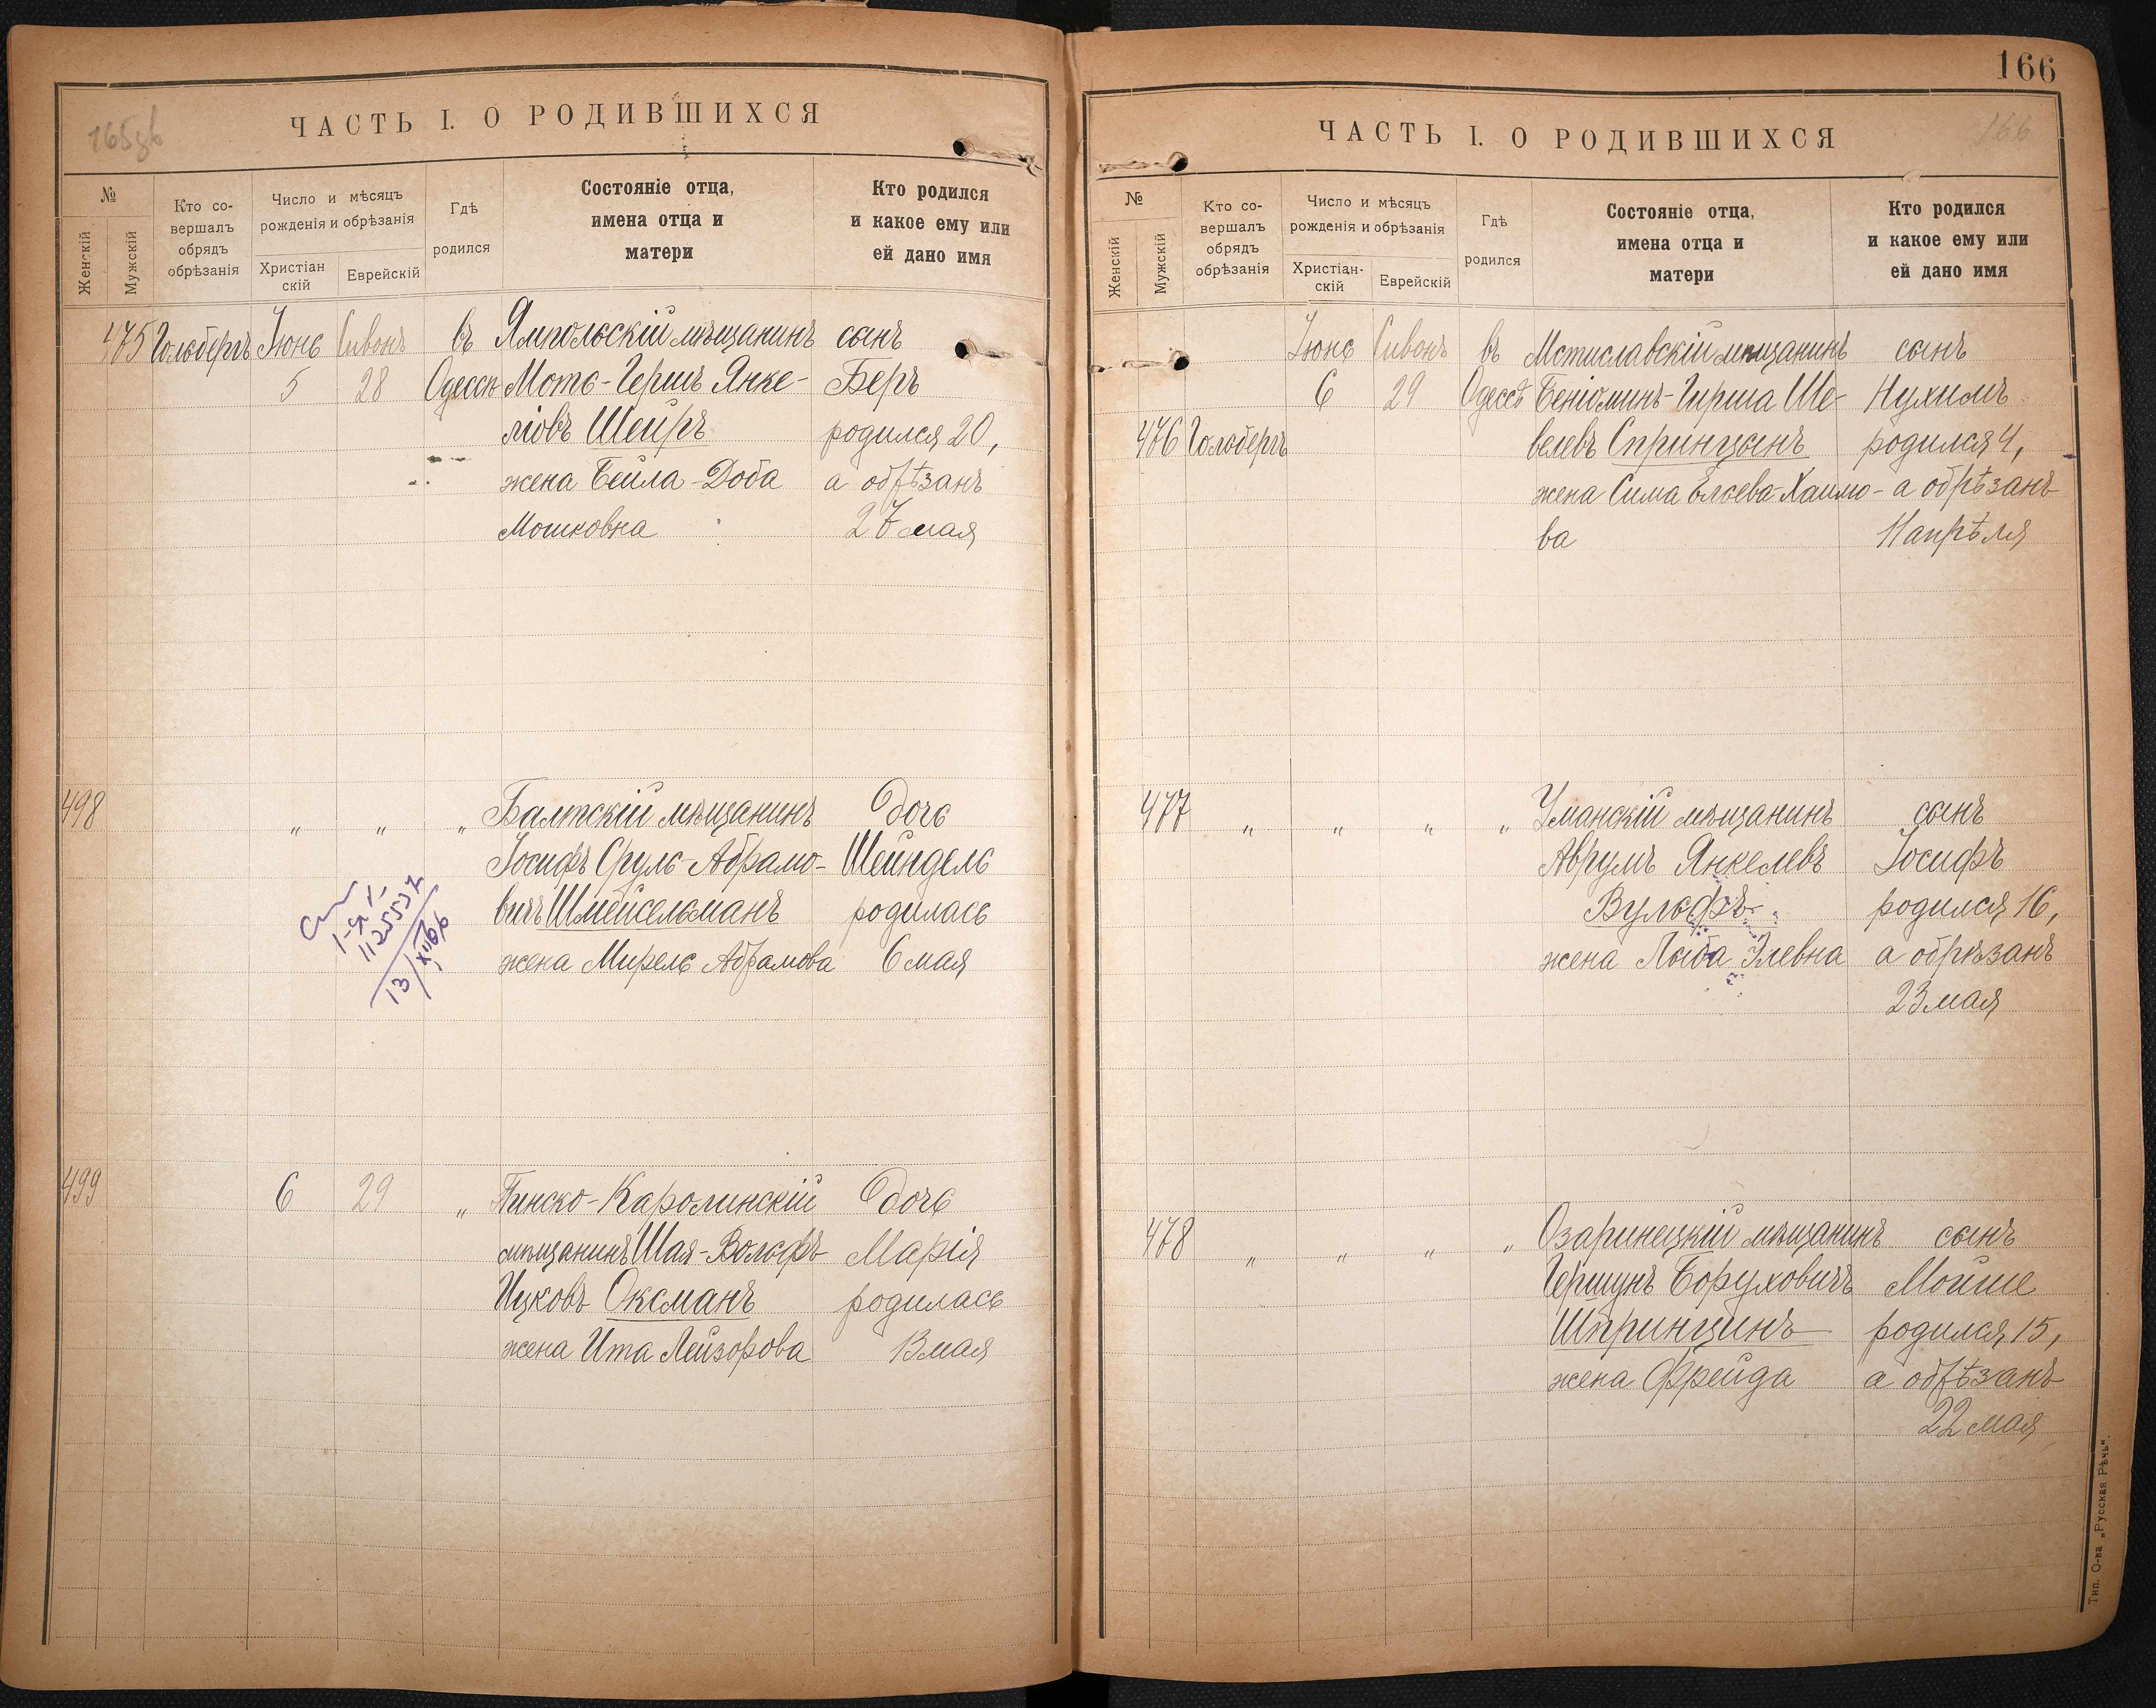 165 зв
ЧАСТЬ I. О РОДИВШИХСЯ
№
Женскій
Мужскій
Кто со-
вершалъ
обрядъ
обрѣзанія
Число и мѣсяцъ
рожденія и обрѣзанія
Христіан
скій
Еврейскій
Гдѣ
родился
Состояніе отца,
имена отца и
матери
Кто родился
и какое ему или
ей дано имя
475 Гольбергъ Іюнь Сивонъ въ Ямпольскій мѣщанинъ сынъ
5 28 Одессѣ Мота-Гершъ Янке- Беръ
ліовъ Шейръ родился 20,
жена Бейла-Доба а обрѣзанъ
Мошковна 27 мая
498 „ „ „ Балтскій мѣщанинъ Дочь
Іосифъ Сруль-Абрамо- Шейндель
вичъ Шмейсельманъ родилась
жена Мирель Абрамова 6 мая
1125537
499 6 29 „ Пинско-Каролинскій Дочь
мѣщанинъ Шая-Вольфъ Марія
Ицковъ Оксманъ родилась
жена Ита Лейзорова 13 мая
166
166
ЧАСТЬ I. О РОДИВШИХСЯ
№
Женскій
Мужскій
Кто со-
вершалъ
обрядъ
обрѣзанія
Число и мѣсяцъ
рожденія и обрѣзанія
Христіан-
скій
Еврейскій
Гдѣ
родился
Состояніе отца,
имена отца и
матери
Кто родился
и какое ему или
ей дано имя
Іюнь Сивонъ въ Мстиславскій мѣщанинъ сынъ
6 29 Одессѣ Беніоминъ-Гирша Ше- Нухимъ
476 Гольбергъ велевъ Спринцынъ родился 4,
жена Сима Елева-Хаимо- а обрѣзанъ
ва 11 апрѣля
477 „ „ „ „ Уманскій мѣщанинъ сынъ
Аврумъ Янкелевъ Іосифъ
Вульфъ родился 16,
жена Лыба Элевна а обрѣзанъ
23 мая
478 „ „ „ „ Озаринецкій мѣщанинъ сынъ
Гершунъ Боруховичъ Мойше
Шпринцинъ родился 15,
жена Фрейда а обрѣзанъ
22 мая
Тип. О-ва „Русская Рѣчь".